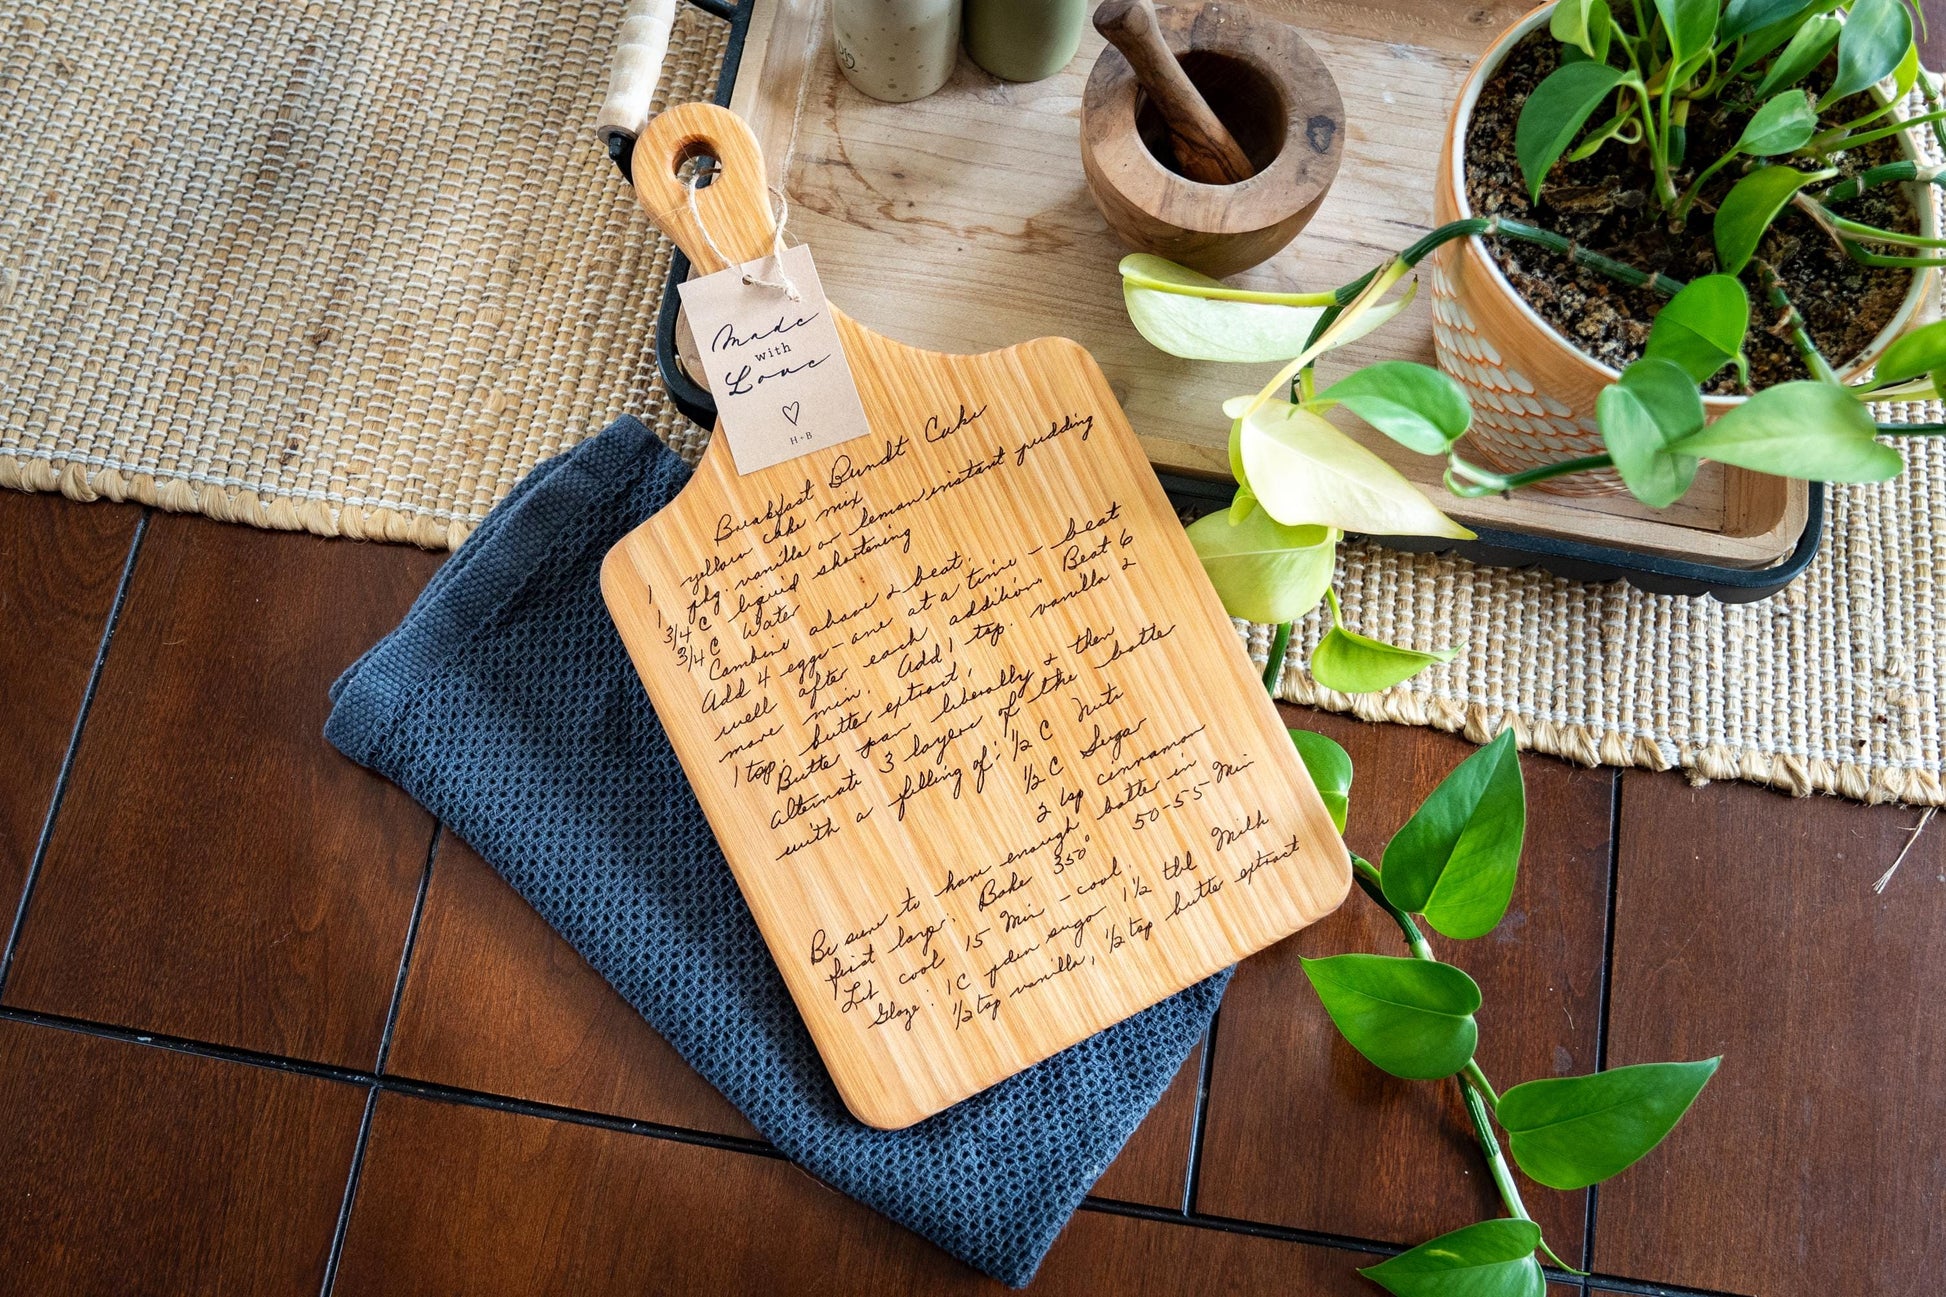 Made
with
Love
H+B
Breakfast Bundt Cake
1 yellow cake mix
1 pkg. vanilla or lemon instant pudding
3/4 C liquid shortening
3/4 C Water
Combine above & beat.
Add 4 eggs - one at a time - beat
well after each addition. Beat 6
more min. Add 1 tsp. vanilla &
1 tsp. butter extract.
Butter pan liberally & then
alternate 3 layers of the batter
with a filling of: 1/2 C Nuts
1/2 C Sugar
2 tsp cinnamon
Be sure to have enough batter in
first layer. Bake 350° 50-55 Min
Let cool 15 Min - cool.
Glaze: 1 C pdrn sugar 1 1/2 tbl Milk
1/2 tsp vanilla, 1/2 tsp butter extract